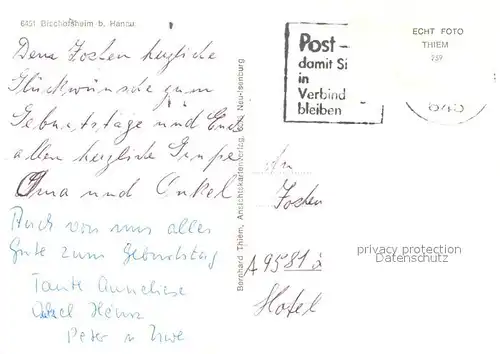 6451 Bischofsheim b. Hanau
Dem Josten herzliche
Glückwünsche zum
Geburtstage und Euch
allen herzliche Grüße
Oma und Onkel
Auch von uns alles
Gute zum Geburtstag
Tante Anneliese
Onkel Heinz
Peter u. Uwe
Bernhard Thiem, Ansichtskartenverlag, Neu-Isenburg
Post –
damit Si
in
Verbind
bleiben
ECHT FOTO
THIEM
759
645
An
Josten
A 9581 a
Hotel
privacy protection
Datenschutz